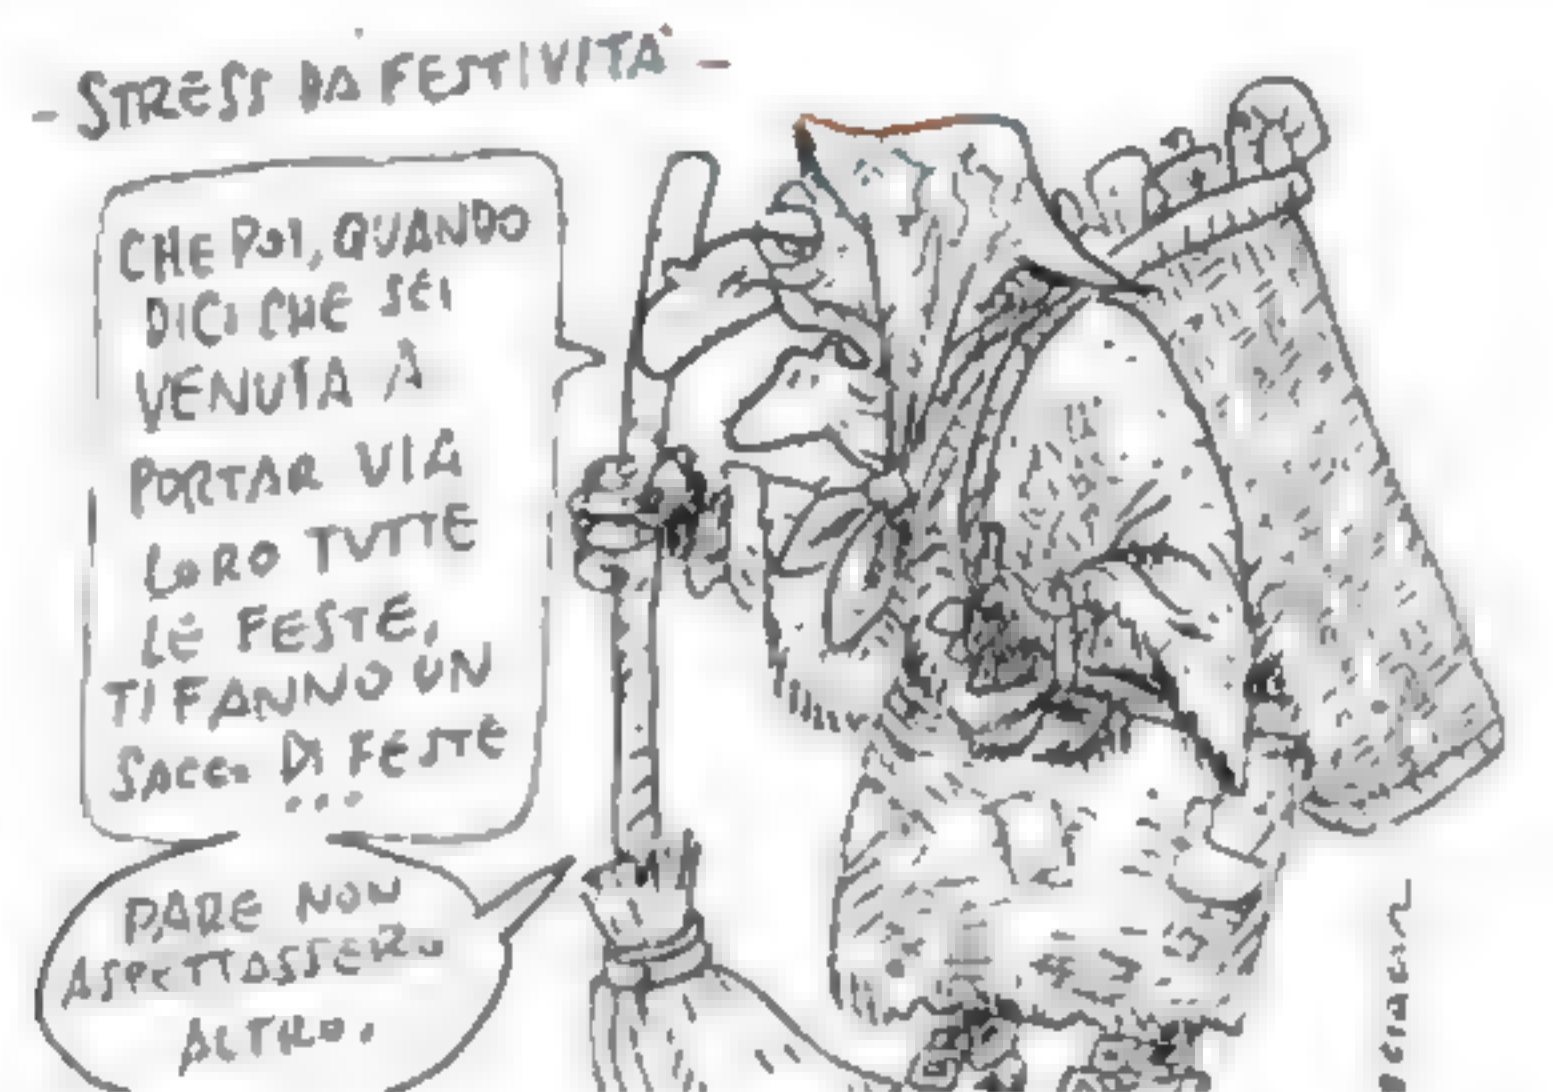 - STRESS DA FESTIVITA' -
CHE POI, QUANDO
DICI CHE SEI
VENUTA A
PORTAR VIA
LORO TUTTE
LE FESTE,
TI FANNO UN
SACCO DI FESTE
...
PARE NON
ASPETTASSERO
ALTRO.